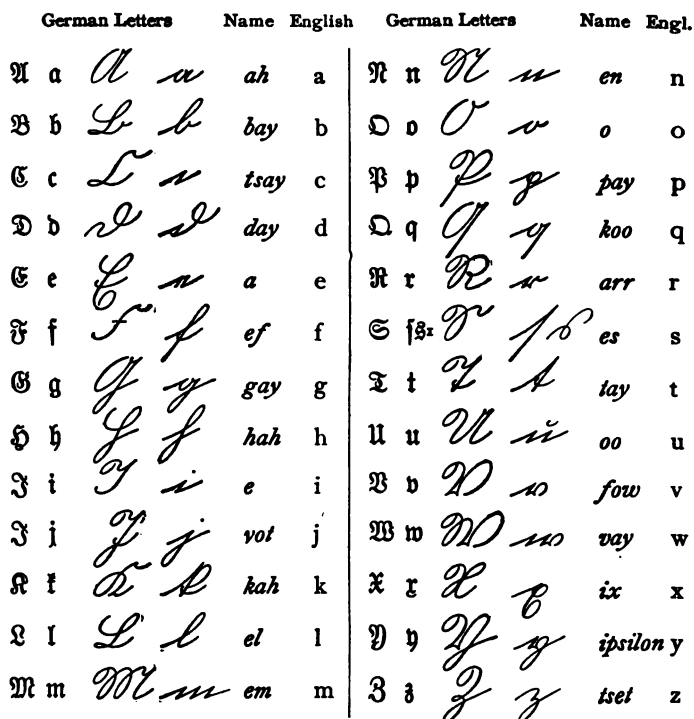 German Letters Name English
A a A a ah a
B b B b bay b
C c C c tsay c
D d D d day d
E e E e a e
F f F f ef f
G g G g gay g
H h H h hah h
I i I i e i
J j J j yot j
K k K k kah k
L l L l el l
M m M m em m
German Letters Name Engl.
N n N n en n
O o O o o o
P p P p pay p
Q q Q q koo q
R r R r arr r
S ſ s¹ S ſ s es s
T t T t tay t
U u U u oo u
V v V v fow v
W w W w vay w
X x X x ix x
Y y Y y ipsilon y
Z z Z z tset z